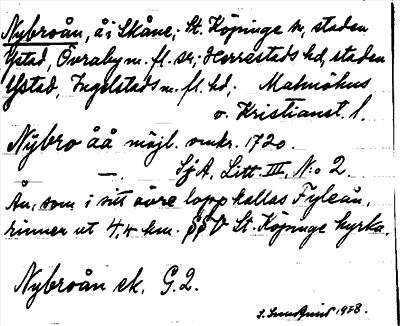 Nybroån, å i Skåne; St. Köpinge sn, staden
Ystad, Övraby m. fl. snr; Herrestads hd, staden
Ystad, Ingelstads m. fl. hd; Malmöhus
o. Kristianst. l.
Nÿbro åå möjl. omkr. 1720.
—. SjA, Litt. III, No 2.
Ån, som i sitt övre lopp kallas Fyleån,
rinner ut 4,4 km. SSV St. Köpinge kyrka.
Nybroån ek. G.2.
S. Sundqvist 1928.